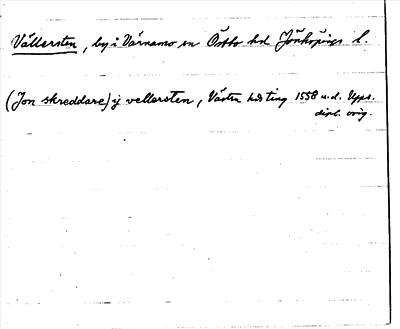 Vällersten, by i Värnamo sn Östbo hd Jönköpings l.
(Jon skreddare) ij vellersten, Västra hds ting 1558 u.d. Upps.
dipl. orig.